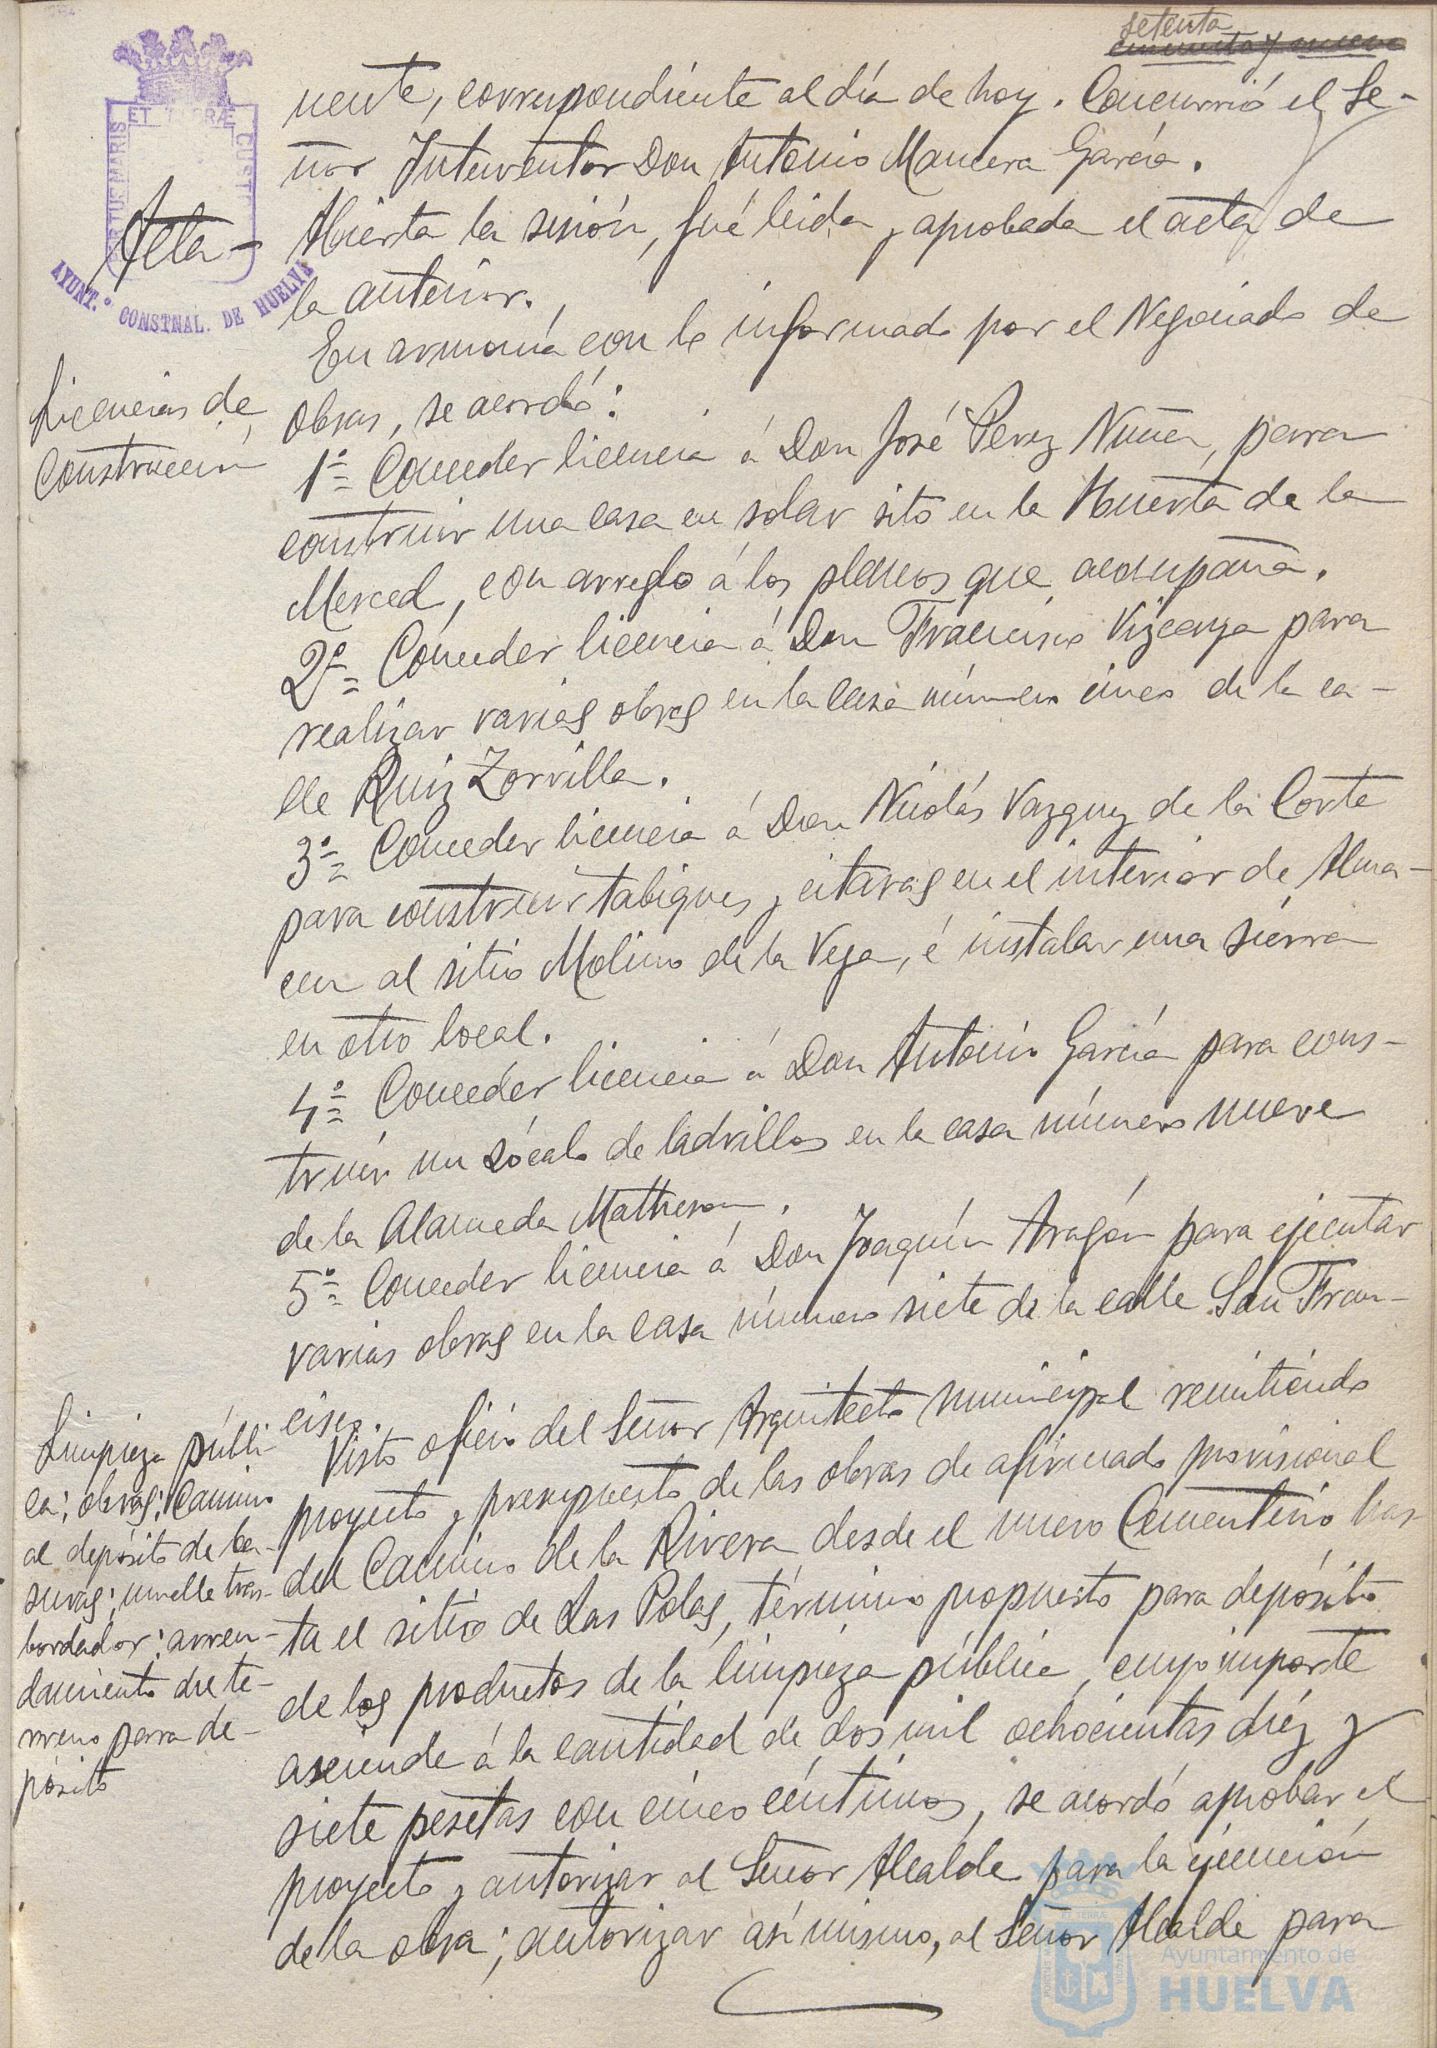 setenta
nente, correspondiente al día de hoy. Concurrió el Se-
ñor Interventor Don Antonio Mancera García.
PORTUS MARIS ET TERRÆ CUST
AYUNT.º CONSTNAL. DE HUELVA
Acta-
Abierta la sesión, fué leida y aprobada el acta de
la anterior.
En armonía con lo informado por el Negociado de
Obras, se acordó:
Licencias de
Construcción
1º= Conceder licencia á Don José Perez Nuñez, para
construir una casa en solar sito en la Huerta de la
Merced, con arreglo á los planos que acompaña.
2º= Conceder licencia á Don Francisco Vizcaya para
realizar varias obras en la casa número cinco de la ca-
lle Ruiz Zorrilla.
3º= Conceder licencia á Don Nicolás Vazquez de la Corte
para construir tabiques y citaras en el interior de Alma-
cen al sitio Molino de la Vega, é instalar una sierra
en otro local.
4º= Conceder licencia á Don Antonio García para cons-
truir un zócalo de ladrillos en la casa número nueve
de la Alameda Matheson.
5º= Conceder licencia á Don Joaquín Aragón para ejecutar
varias obras en la casa número siete de la calle San Fran-
cisco.
Limpieza públi-
ca; obras; Camino
al depósito de ba-
suras; muelle tras-
bordador; arren-
damiento de te-
rreno para de-
pósito
Visto oficio del Señor Arquitecto municipal remitiendo
proyecto y presupuesto de las obras de afirmado provisional
del Camino de la Rivera desde el nuevo Cementerio has-
ta el sitio de Las Polas, término propuesto para depósito
de los productos de la limpieza pública, cuyo importe
asciende á la cantidad de dos mil ochocientas diez y
siete pesetas con cinco céntimos, se acordó aprobar el
proyecto y autorizar al Señor Alcalde para la ejecución
de la obra; autorizar asímismo, al Señor Alcalde para
Ayuntamiento de
HUELVA